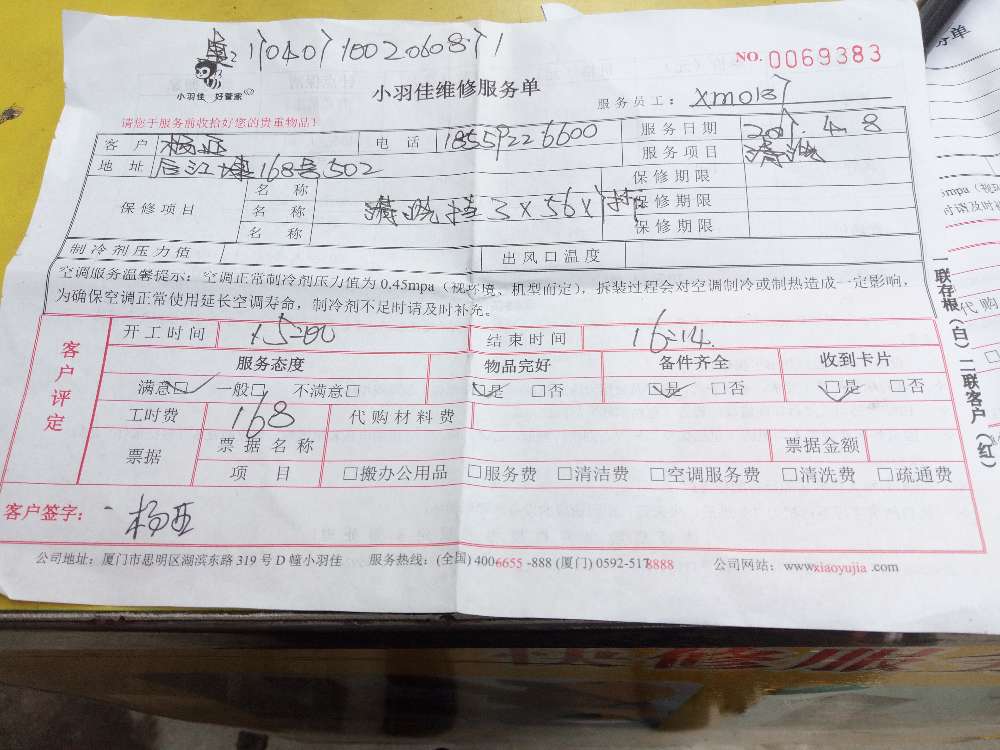 NO. 0069383
小羽佳 好管家
小羽佳维修服务单
服务员工: xm0137
请您于服务前收拾好您的贵重物品!
客户 杨亚 电话 18559226600 服务日期 4.8
地址 后江埭168号502 服务项目 清洗
保修项目 名称 保修期限
名称 清洗挂3×56× 保修期限
名称 保修期限
制冷剂压力值 出风口温度
空调服务温馨提示: 空调正常制冷剂压力值为 0.45mpa (视环境、机型而定), 拆装过程会对空调制冷或制热造成一定影响,
为确保空调正常使用延长空调寿命, 制冷剂不足时请及时补充。
客户评定
开工时间 15:00 结束时间 16:14.
服务态度 物品完好 备件齐全 收到卡片
满意□ 一般□ 不满意□ □是 □否 □是 □否 □是 □否
工时费 168 代购材料费
票据 票据名称 票据金额
项目 □搬办公用品 □服务费 □清洁费 □空调服务费 □清洗费 □疏通费
客户签字: 杨亚
公司地址: 厦门市思明区湖滨东路 319 号 D 幢小羽佳 服务热线: (全国) 4006655-888 (厦门) 0592-5178888 公司网站: www.xiaoyujia.com
一联存根(白) 二联客户(红)